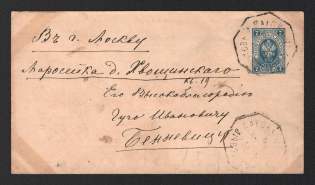 Въ г. Москву
Маросейка д. Хвощинскаго
кв. 19
Его Высокоблагородію
Гуго Ивановичу
Бенневицъ
7